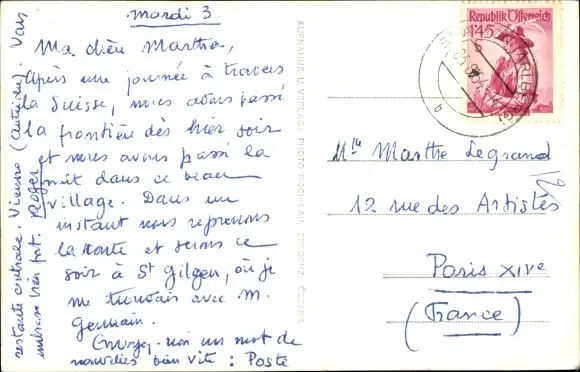 mardi 3
Ma chère Marthe,
Après une journée à travers
la Suisse, nous avons passé
la frontière dès hier soir
et nous avons passé la
nuit dans ce beau
village. Dans un
instant nous reprenons
la route et serons ce
soir à St Gilgen, où je
me trouvais avec M.
Germain.
Envoyez-moi un mot de
nouvelles bien vite : Poste
restante centrale, Vienne (Autriche). Vous
embrasse bien fort. Roger
AUFNAHME U. VERLAG: PHOTO RISCH-LAU, BREGENZ, ÖSTERR.
Republik Österreich
1.45
S
Mlle Marthe Legrand
12 rue des Artistes
Paris XIVe
(France)